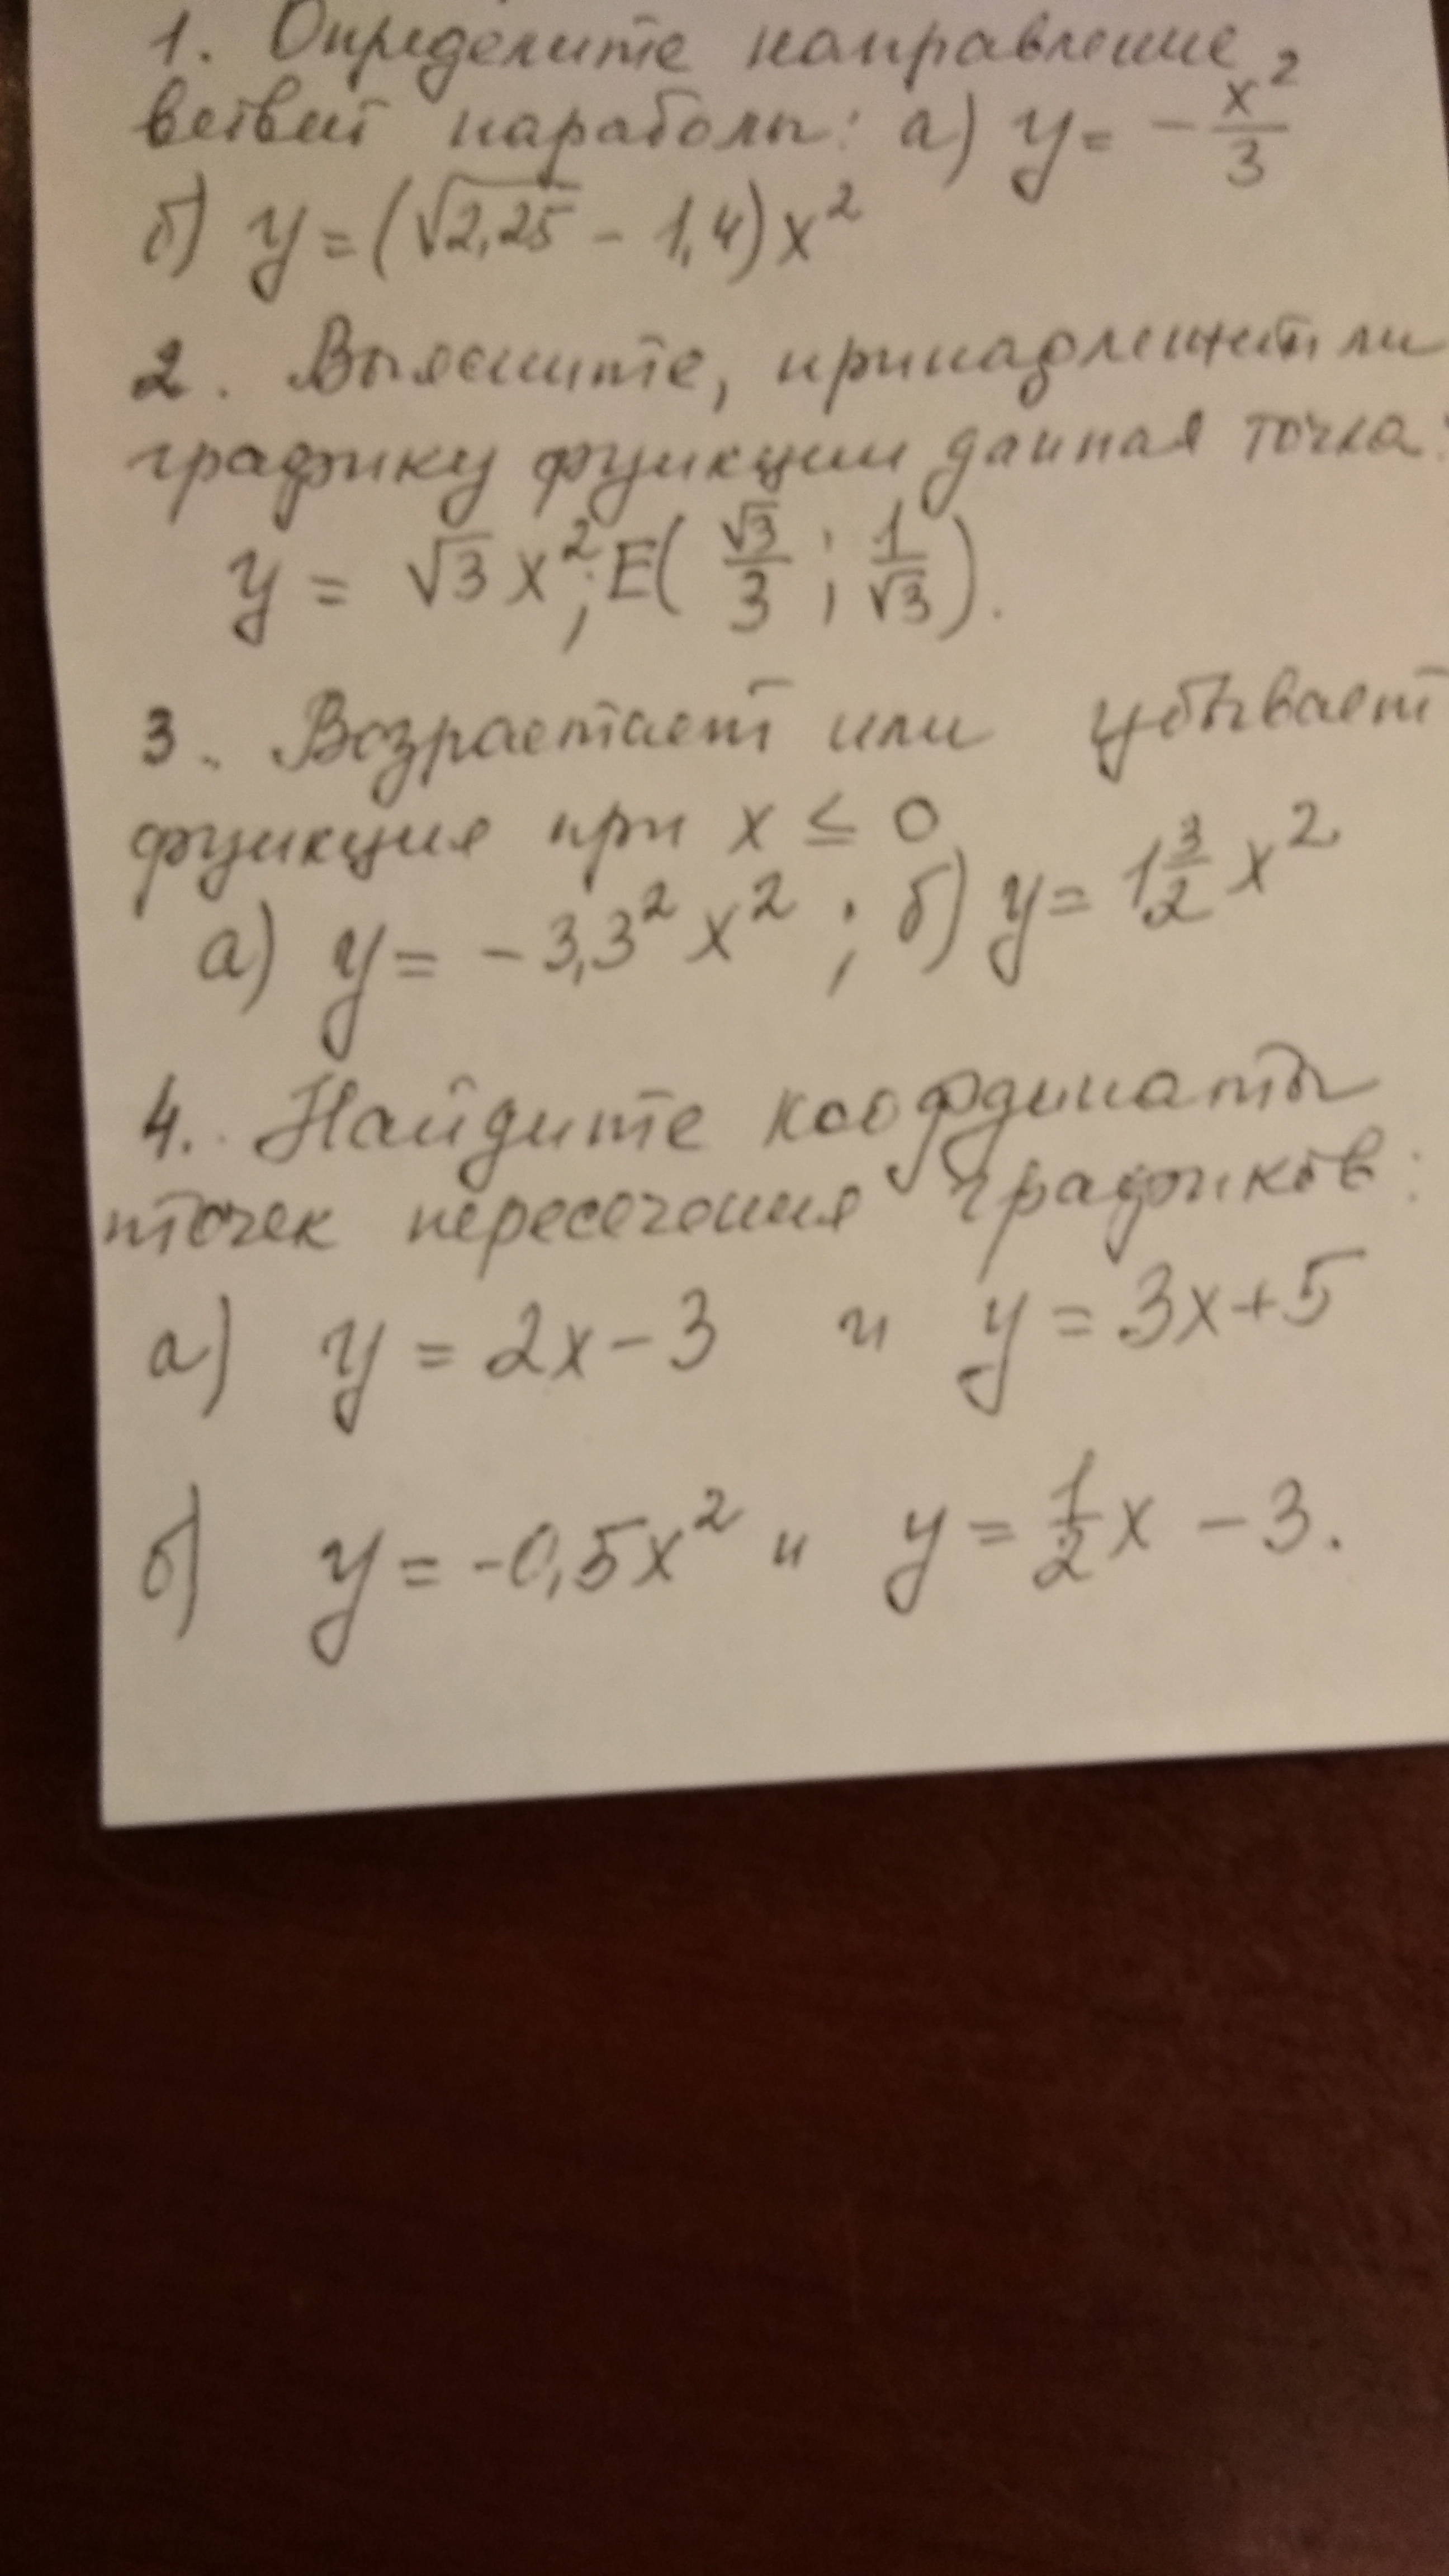 1. Определите направление
ветвей параболы: а) y = -x²/3
б) y = (√2,25 - 1,4)x²
2. Выясните, принадлежит ли
графику функции данная точка:
y = √3 x²; E(√3/3 ; 1/√3).
3. Возрастает или убывает
функция при x ≤ 0
а) y = -3,3² x² ; б) y = 1 3/2 x²
4. Найдите координаты
точек пересечения графиков:
а) y = 2x - 3 и y = 3x + 5
б) y = -0,5x² и y = 1/2 x - 3.